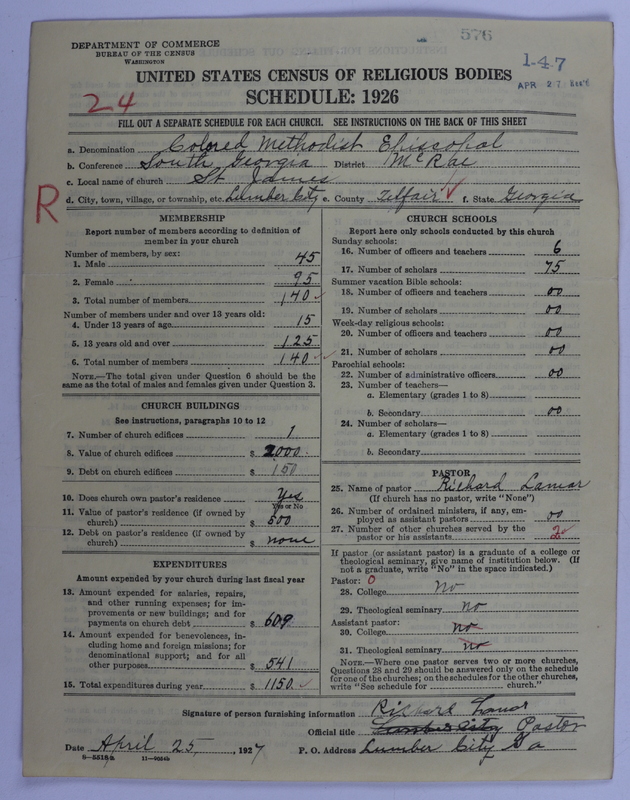 576
DEPARTMENT OF COMMERCE
BUREAU OF THE CENSUS
WASHINGTON
1-47
APR 27
UNITED STATES CENSUS OF RELIGIOUS BODIES
SCHEDULE: 1926
24
FILL OUT A SEPARATE SCHEDULE FOR EACH CHURCH. SEE INSTRUCTIONS ON THE BACK OF THIS SHEET
a. Denomination Colored Methodist Episcopal
b. Conference South Georgia District McRae
c. Local name of church St James
R
d. City, town, village, or township, etc. Lumber City e. County Telfair ✓ f. State Georgia
MEMBERSHIP
Report number of members according to definition of
member in your church
Number of members, by sex:
1. Male 45
2. Female 95
3. Total number of members 140 ✓
Number of members under and over 13 years old:
4. Under 13 years of age 15
5. 13 years old and over 125
6. Total number of members 140 ✓
NOTE.—The total given under Question 6 should be the
same as the total of males and females given under Question 3.
CHURCH BUILDINGS
See instructions, paragraphs 10 to 12
7. Number of church edifices 1
8. Value of church edifices $ 2000.
9. Debt on church edifices $ 150
10. Does church own pastor's residence Yes
Yes or No
11. Value of pastor's residence (if owned by
church) $ 500
12. Debt on pastor's residence (if owned by
church) $ none
EXPENDITURES
Amount expended by your church during last fiscal year
13. Amount expended for salaries, repairs,
and other running expenses; for im-
provements or new buildings; and for
payments on church debt $ 609
14. Amount expended for benevolences, in-
cluding home and foreign missions; for
denominational support; and for all
other purposes $ 541
15. Total expenditures during year $ 1150. ✓
CHURCH SCHOOLS
Report here only schools conducted by this church
Sunday schools:
16. Number of officers and teachers 6
17. Number of scholars 75
Summer vacation Bible schools:
18. Number of officers and teachers 00
19. Number of scholars 00
Week-day religious schools:
20. Number of officers and teachers 00
21. Number of scholars 00
Parochial schools:
22. Number of administrative officers 00
23. Number of teachers—
a. Elementary (grades 1 to 8)
b. Secondary 00
24. Number of scholars—
a. Elementary (grades 1 to 8)
b. Secondary
PASTOR
25. Name of pastor Richard Lamar
(If church has no pastor, write "None")
26. Number of ordained ministers, if any, em-
ployed as assistant pastors 00
27. Number of other churches served by the
pastor or his assistants 2
If pastor (or assistant pastor) is a graduate of a college or
theological seminary, give name of institution below. (If
not a graduate, write "No" in the space indicated.)
Pastor: 0
28. College No
29. Theological seminary no
Assistant pastor:
30. College no
31. Theological seminary no
NOTE.—Where one pastor serves two or more churches,
Questions 28 and 29 should be answered only on the schedule
for one of the churches; on the schedules for the other churches,
write "See schedule for ________ church."
Signature of person furnishing information Richard Lamar
Official title Lumber City Pastor
Date April 25, 1927 P. O. Address Lumber City Ga